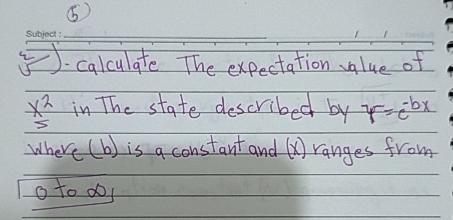 (5)
Subject : / /
)- calculate The expectation value of
x²/5 in The state described by Ψ=e^-bx
where (b) is a constant and (x) ranges from
0 to ∞